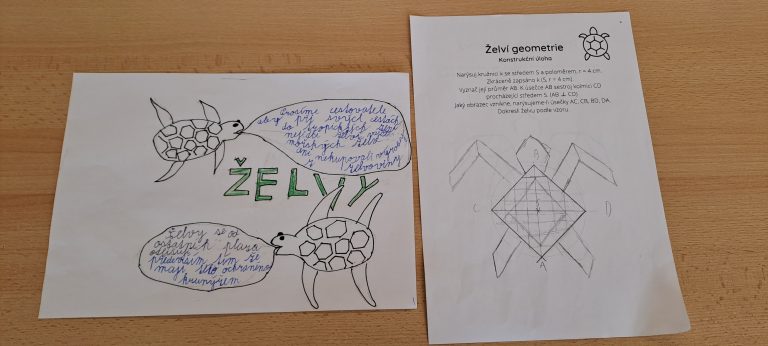 Prosíme cestovatele
aby při svých cestách
do tropických zemí
mořských želv
ani
nekupovali výrobky
želvoviny
ŽELVY
Želvy se od
ostatních plazů
odlišují
především tím že
mají tělo ochráněno
krunýřem
Želví geometrie
Konstrukční úloha
Narýsuj kružnici k se středem S a poloměrem, r = 4 cm.
Zkráceně zapsáno k (S, r = 4 cm).
Vyznač její průměr AB. K úsečce AB sestroj kolmici CD
procházející středem S. (AB ⊥ CD)
Jaký obrazec vznikne, narýsujeme-li úsečky AC, CB, BD, DA.
Dokresli želvu podle vzoru.
B
C
D
A